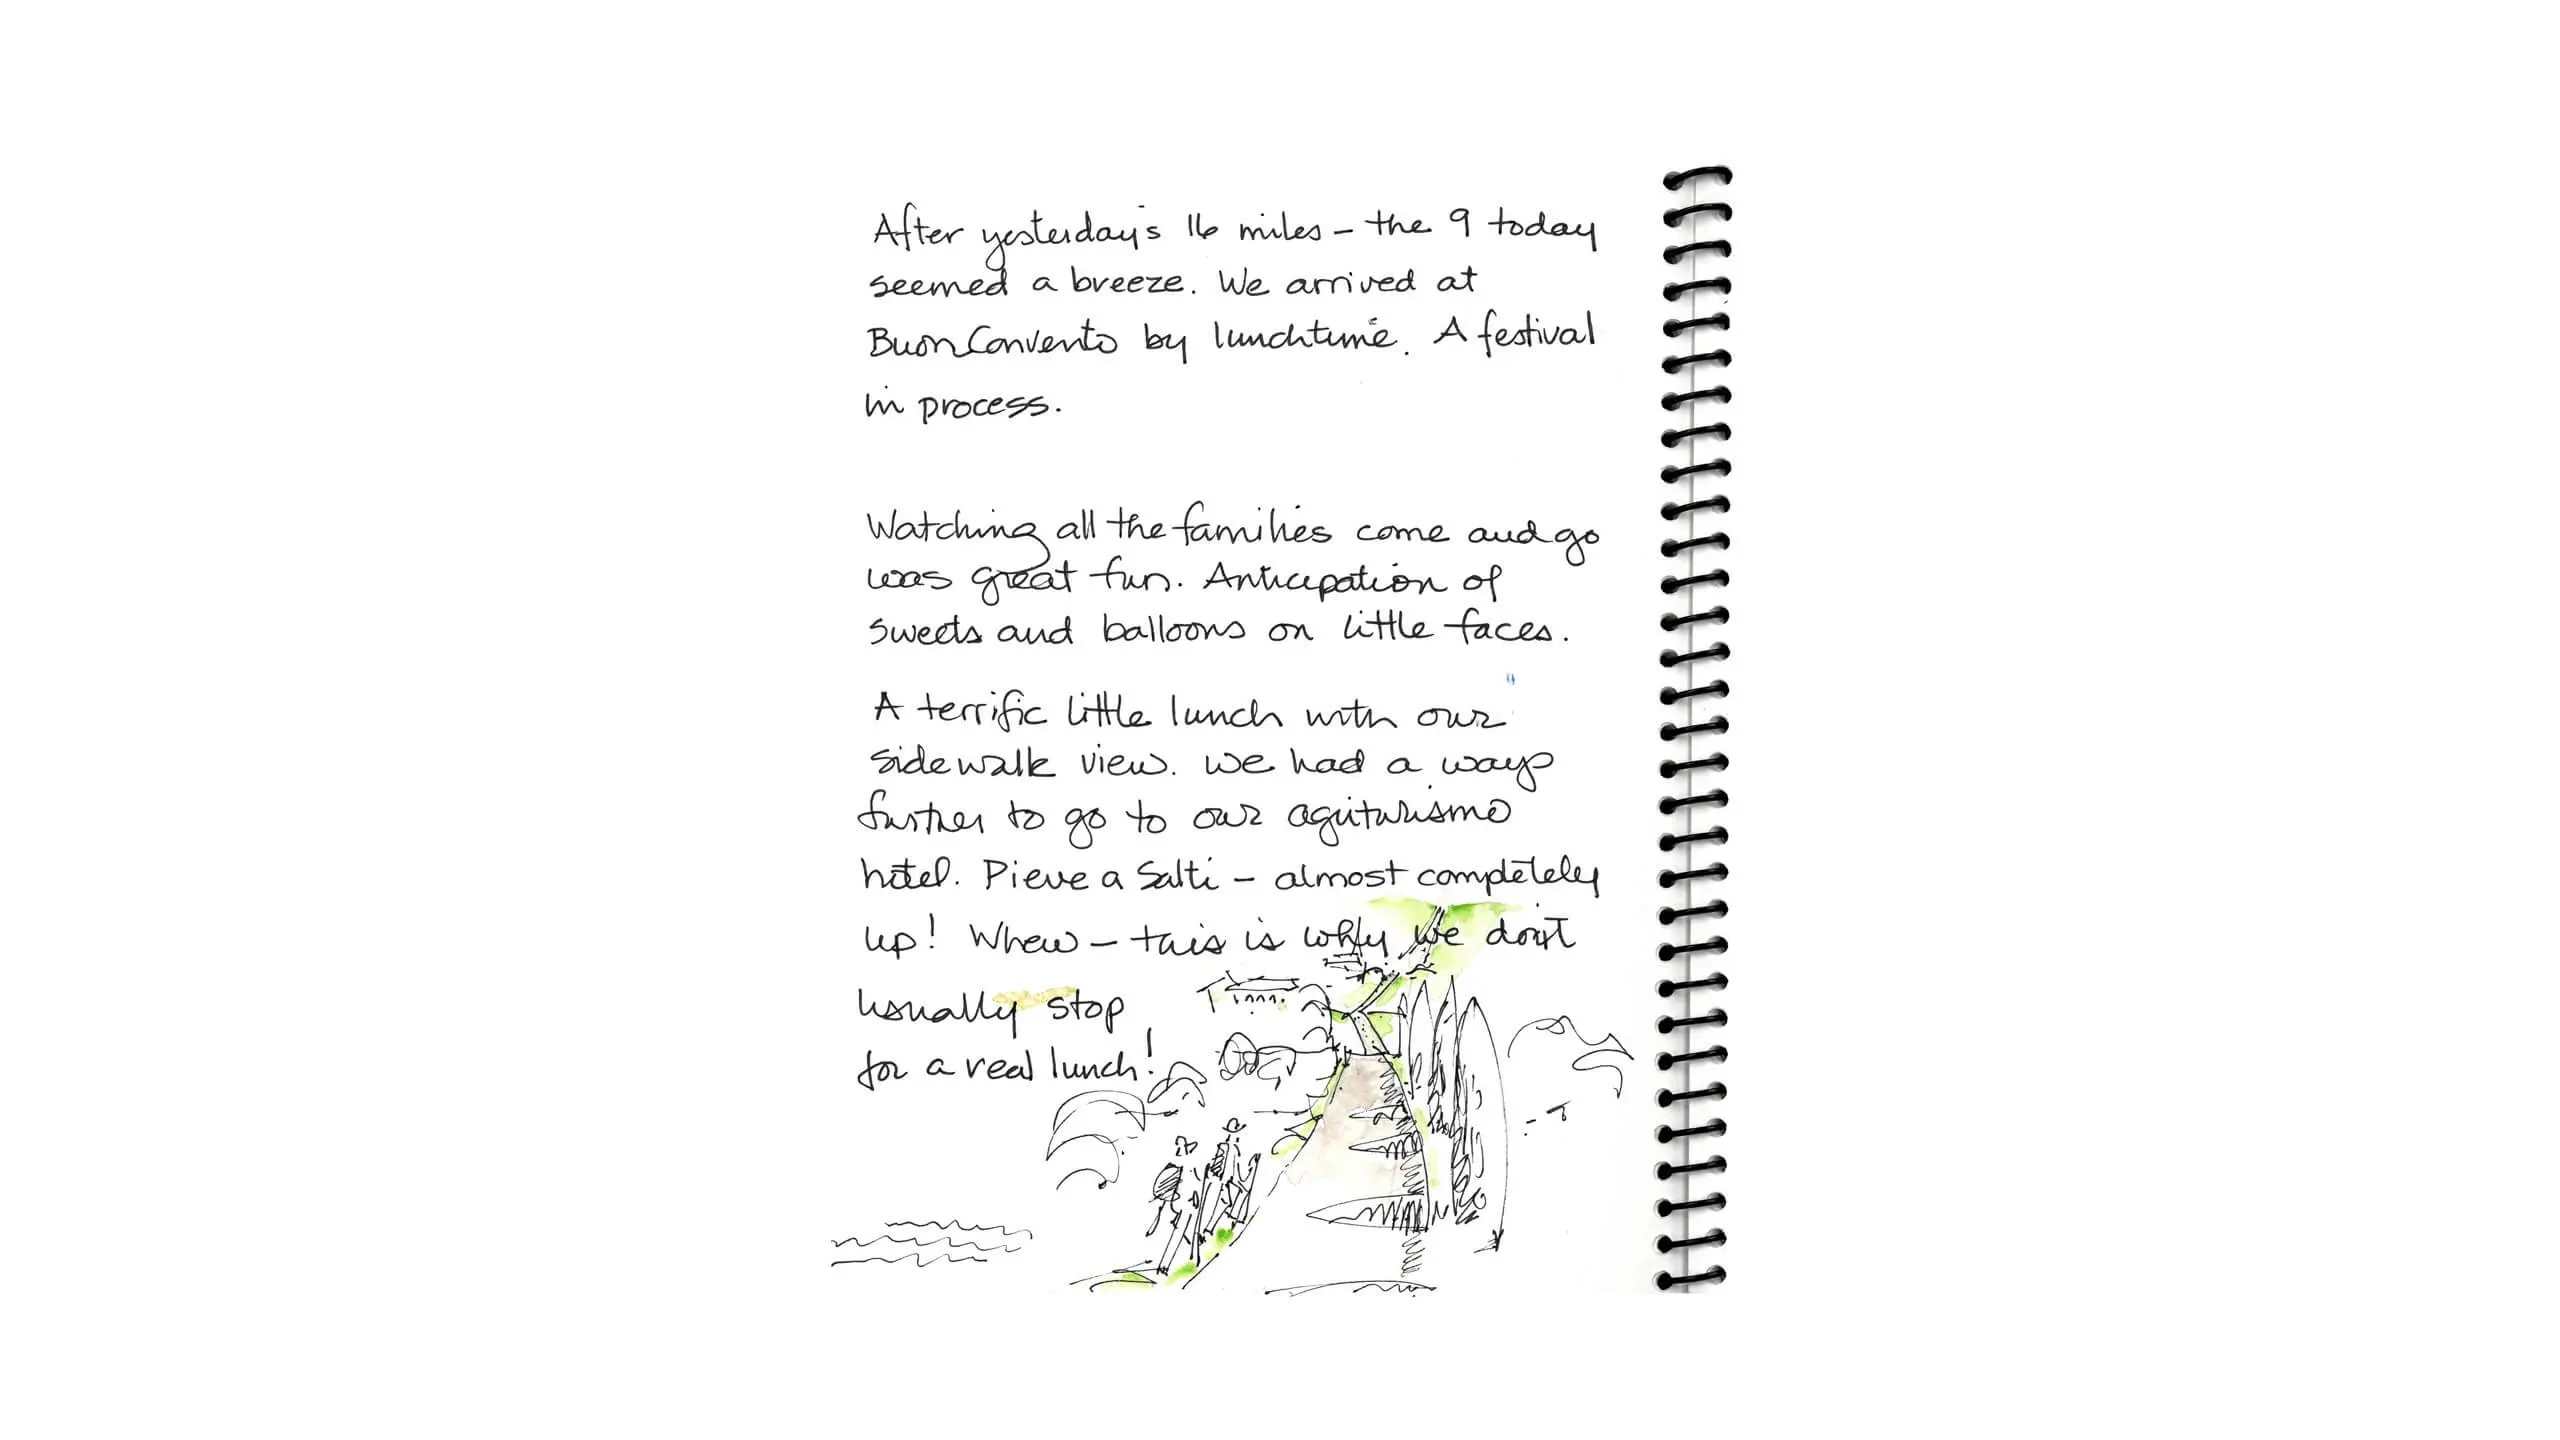 After yesterday's 16 miles – the 9 today
seemed a breeze. We arrived at
BuonConvento by lunchtime. A festival
in process.
Watching all the families come and go
was great fun. Anticipation of
sweets and balloons on little faces.
A terrific little lunch with our
sidewalk view. We had a ways
further to go to our agriturismo
hotel. Pieve a Salti – almost completely
up! Whew – this is why we don't
usually stop
for a real lunch!